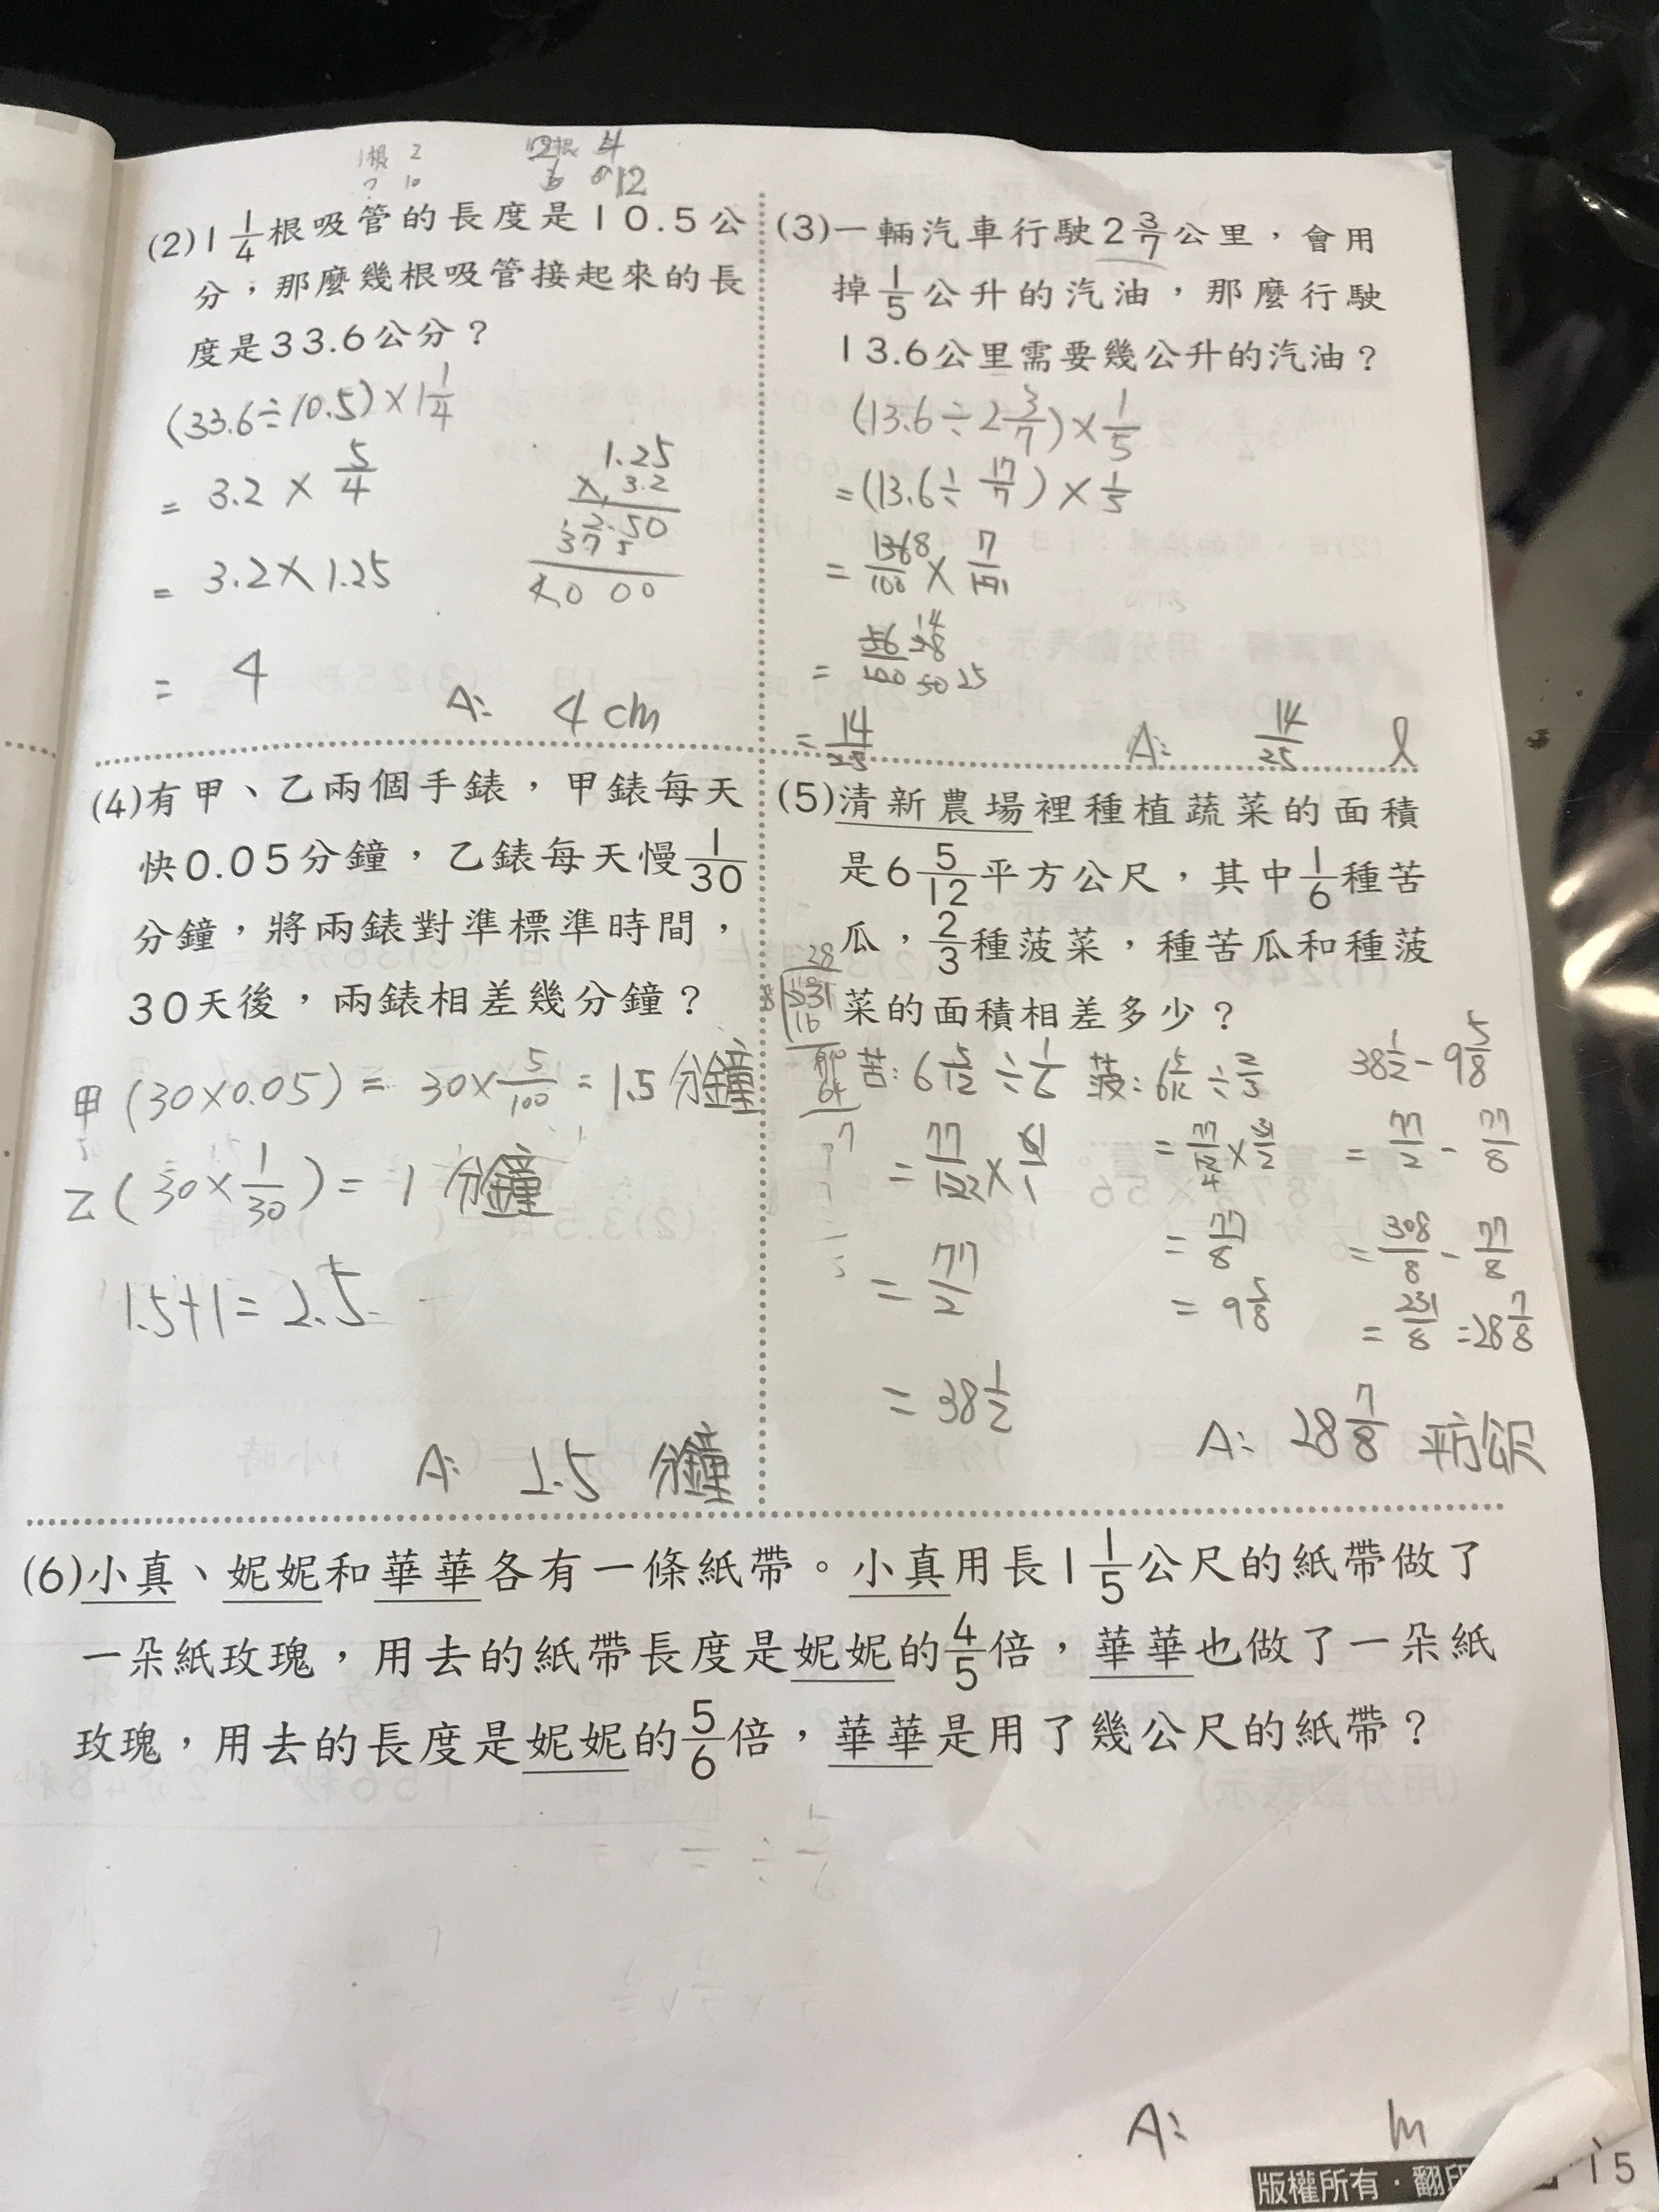 1根 2
12
(2) 1 1/4 根吸管的長度是10.5公
分，那麼幾根吸管接起來的長
度是33.6公分？
(33.6÷10.5)×1 1/4
= 3.2 × 5/4
= 3.2×1.25
= 4
1.25
× 3.2
2.50
375
4.000
A: 4 cm
(3)一輛汽車行駛2 3/7公里，會用
掉1/5公升的汽油，那麼行駛
13.6公里需要幾公升的汽油？
(13.6÷2 3/7)×1/5
=(13.6÷17/7)×1/5
= 14/25
A: 14/25 l
(4)有甲、乙兩個手錶，甲錶每天
快0.05分鐘，乙錶每天慢1/30
分鐘，將兩錶對準標準時間，
30天後，兩錶相差幾分鐘？
甲(30×0.05) = 30×5/100 = 1.5分鐘
乙(30×1/30) = 1 分鐘
1.5+1=2.5
A: 2.5 分鐘
(5)清新農場裡種植蔬菜的面積
是6 5/12平方公尺，其中1/6種苦
瓜，2/3種菠菜，種苦瓜和種菠
菜的面積相差多少？
苦: 6 5/12 ÷ 1/6
= 77/2
= 38 1/2
菠: 6 5/12 ÷ 2/3
= 77/8
= 9 5/8
38 1/2 - 9 5/8
= 77/2 - 77/8
= 308/8 - 77/8
= 231/8 = 28 7/8
A: 28 7/8 平方公尺
(6)小真、妮妮和華華各有一條紙帶。小真用長1 1/5公尺的紙帶做了
一朵紙玫瑰，用去的紙帶長度是妮妮的4/5倍，華華也做了一朵紙
玫瑰，用去的長度是妮妮的5/6倍，華華是用了幾公尺的紙帶？
A: m
版權所有．翻印
15